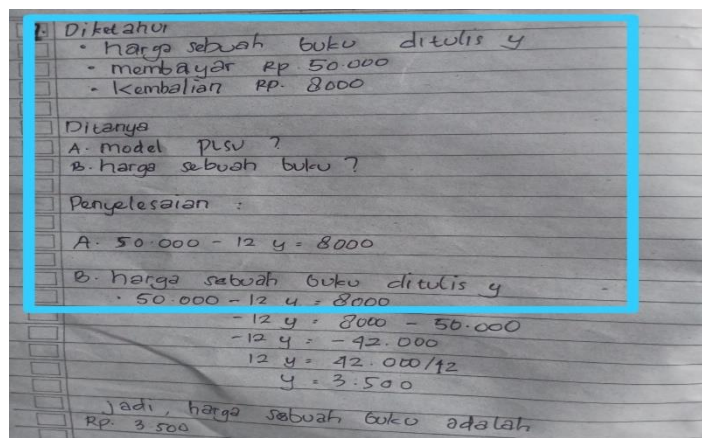 1. Diketahui
• harga sebuah buku ditulis y
- membayar Rp. 50.000
- Kembalian Rp. 8000
Ditanya
A. model PLSV ?
B. harga sebuah buku ?
Penyelesaian :
A. 50.000 - 12 y = 8000
B. harga sebuah buku ditulis y
• 50.000 - 12 y = 8000
- 12 y = 8000 - 50.000
- 12 y = - 42.000
12 y = 42.000/12
y = 3.500
Jadi, harga sebuah buku adalah
Rp. 3 500